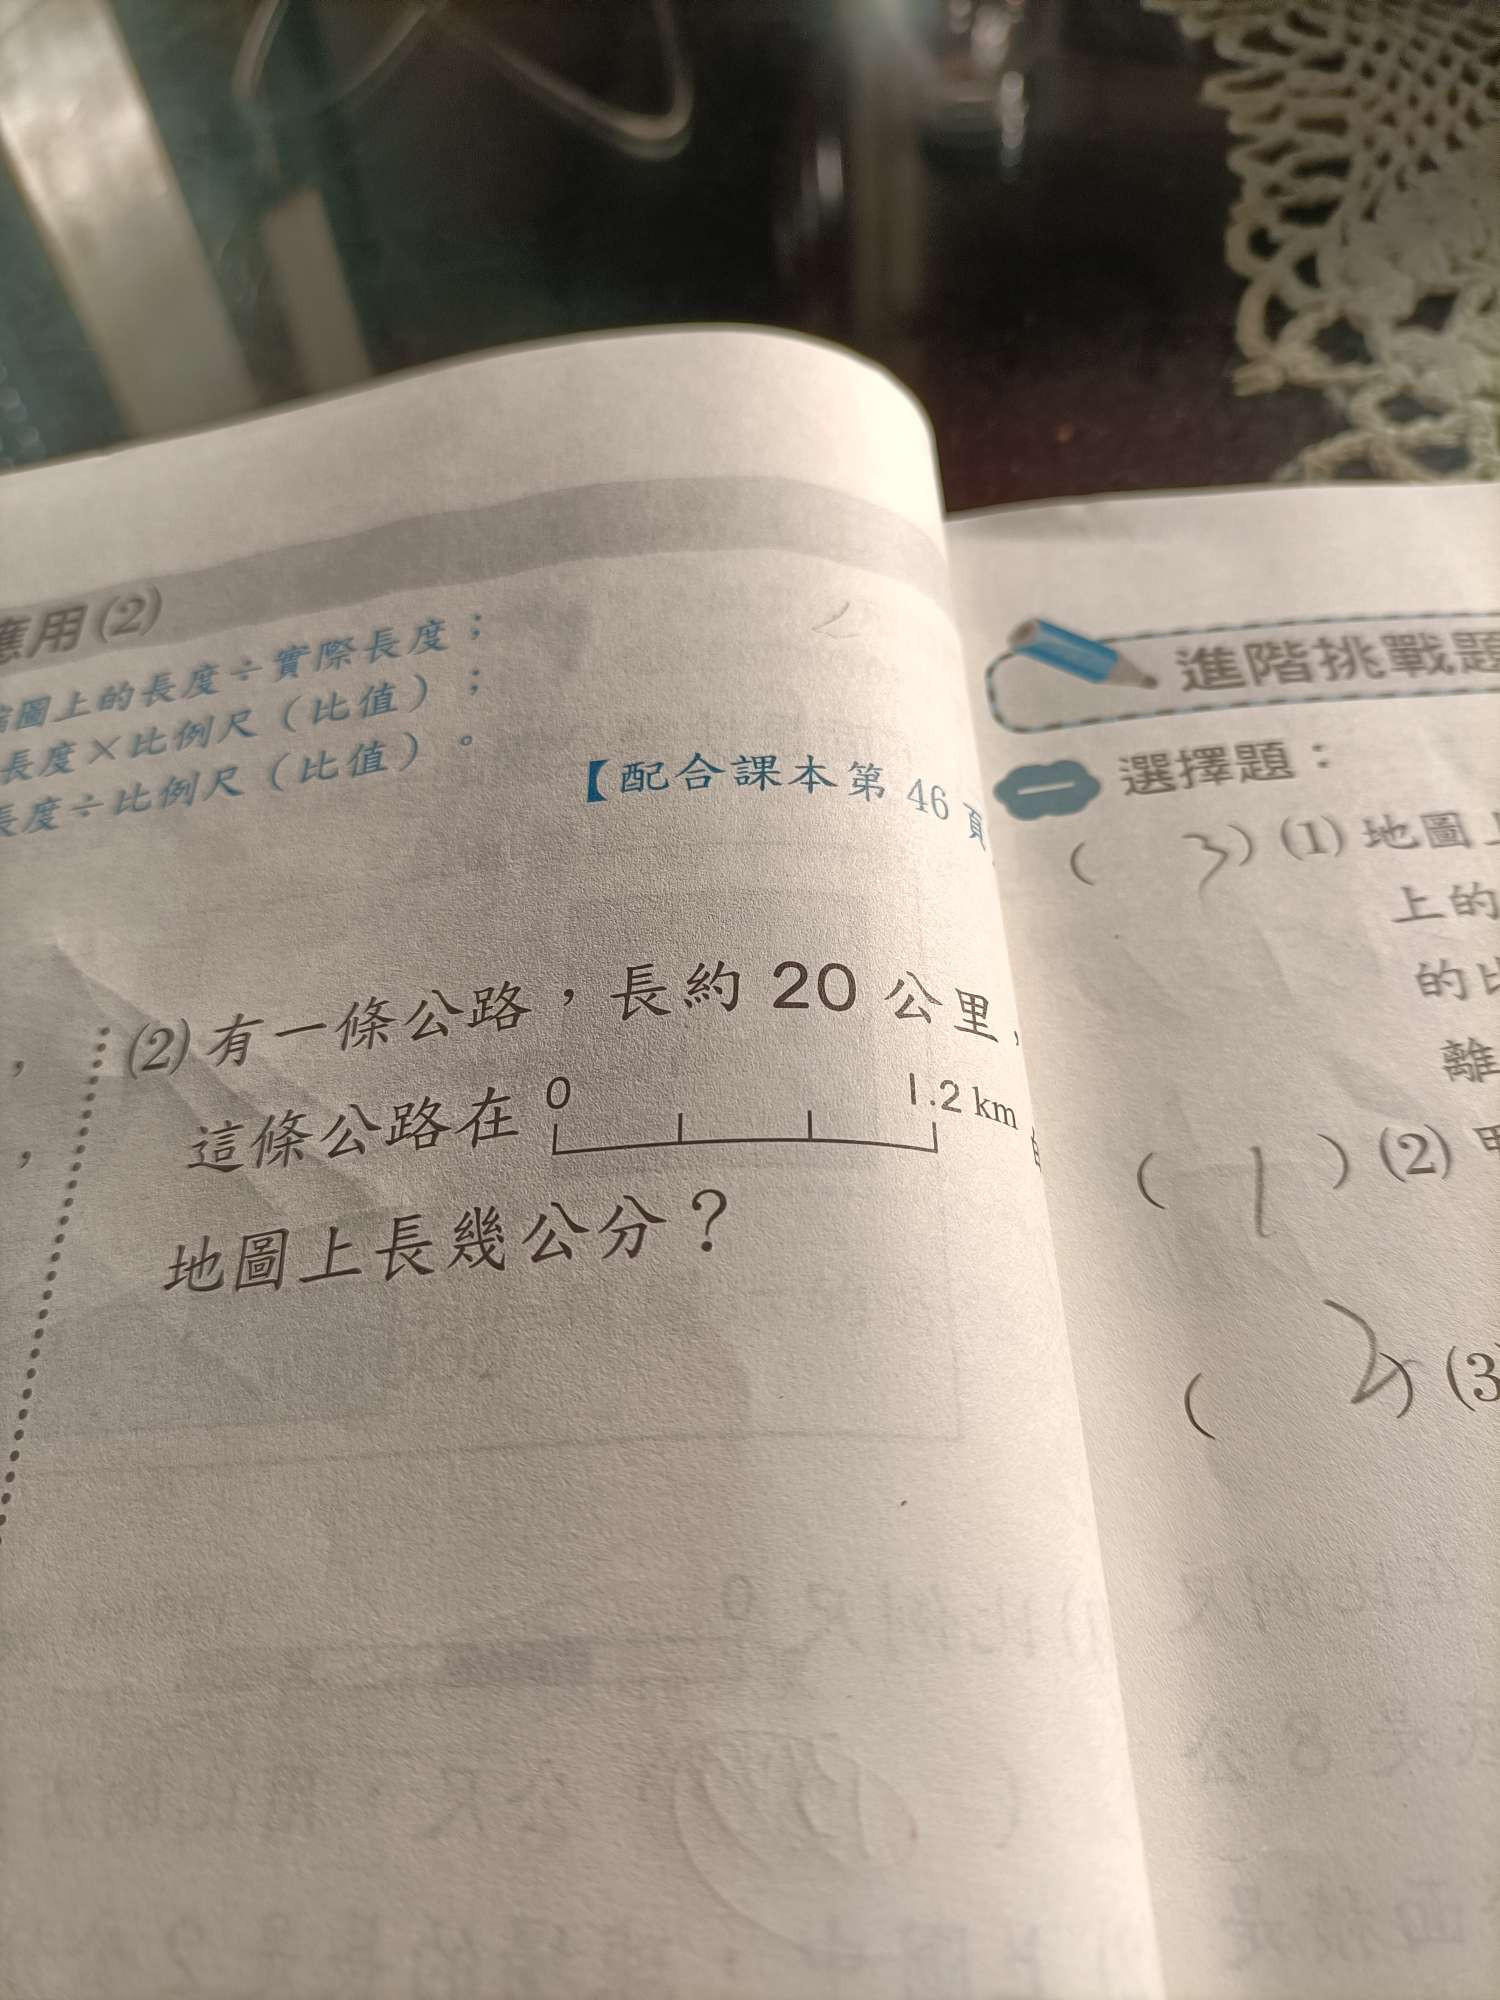 應用(2)
圖上的長度÷實際長度；
長度×比例尺（比值）；
長度÷比例尺（比值）。
【配合課本第 46 頁
(2) 有一條公路，長約 20 公里，
這條公路在 0 1.2 km
地圖上長幾公分？
進階挑戰題
一 選擇題：
( 3 ) (1) 地圖上
上的
的比
離
( 1 ) (2) 甲
( 2 ) (3)